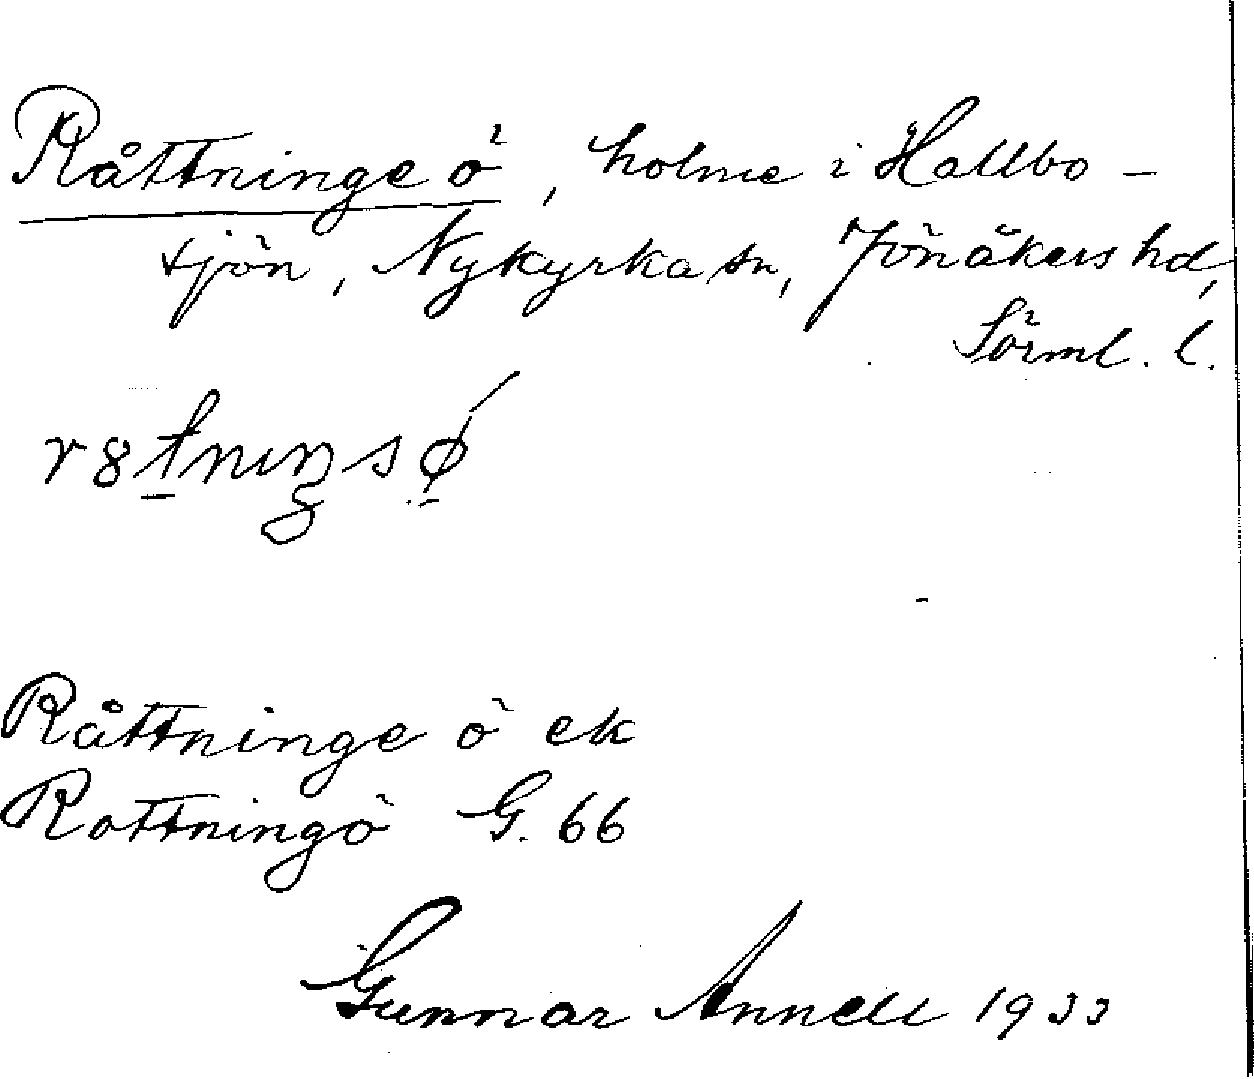 Råttninge ö, holme i Hallbo-
sjön, Nykyrka sn, Jönåkers hd,
Sörml. l.
Råttninge ö ek
Rottningö G. 66
Gunnar Annell 1933